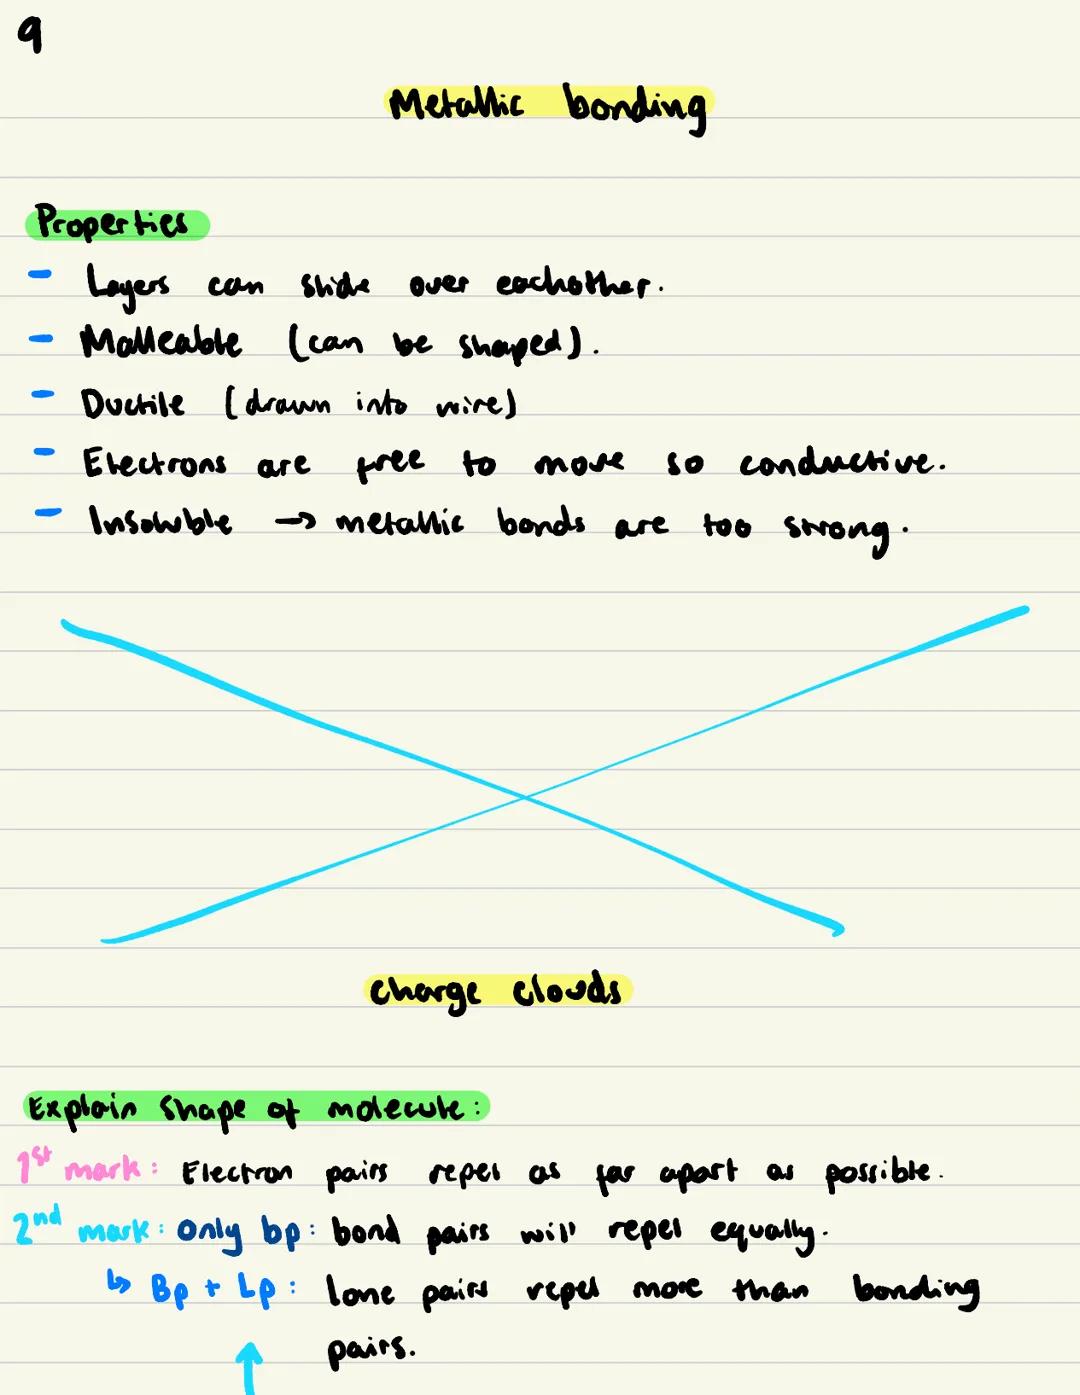 9
Metallic bonding
Properties
- Layers can slide over eachother.
- Malleable (can be shaped).
- Ductile (drawn into wire)
- Electrons are free to move so conductive.
- Insoluble → metallic bonds are too strong.
Charge clouds
Explain shape of molecule:
1st mark: Electron pairs repel as far apart as possible.
2nd mark: Only bp: bond pairs will repel equally.
↳ Bp + Lp: lone pairs repel more than bonding
pairs.